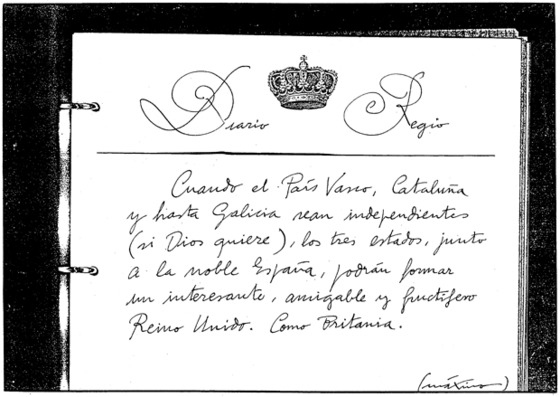 Diario Regio
Cuando el País Vasco, Cataluña
y hasta Galicia sean independientes
(si Dios quiere), los tres estados, junto
a la noble España, podrán formar
un interesante, amigable y fructífero
Reino Unido. Como Britania.
(máximo)